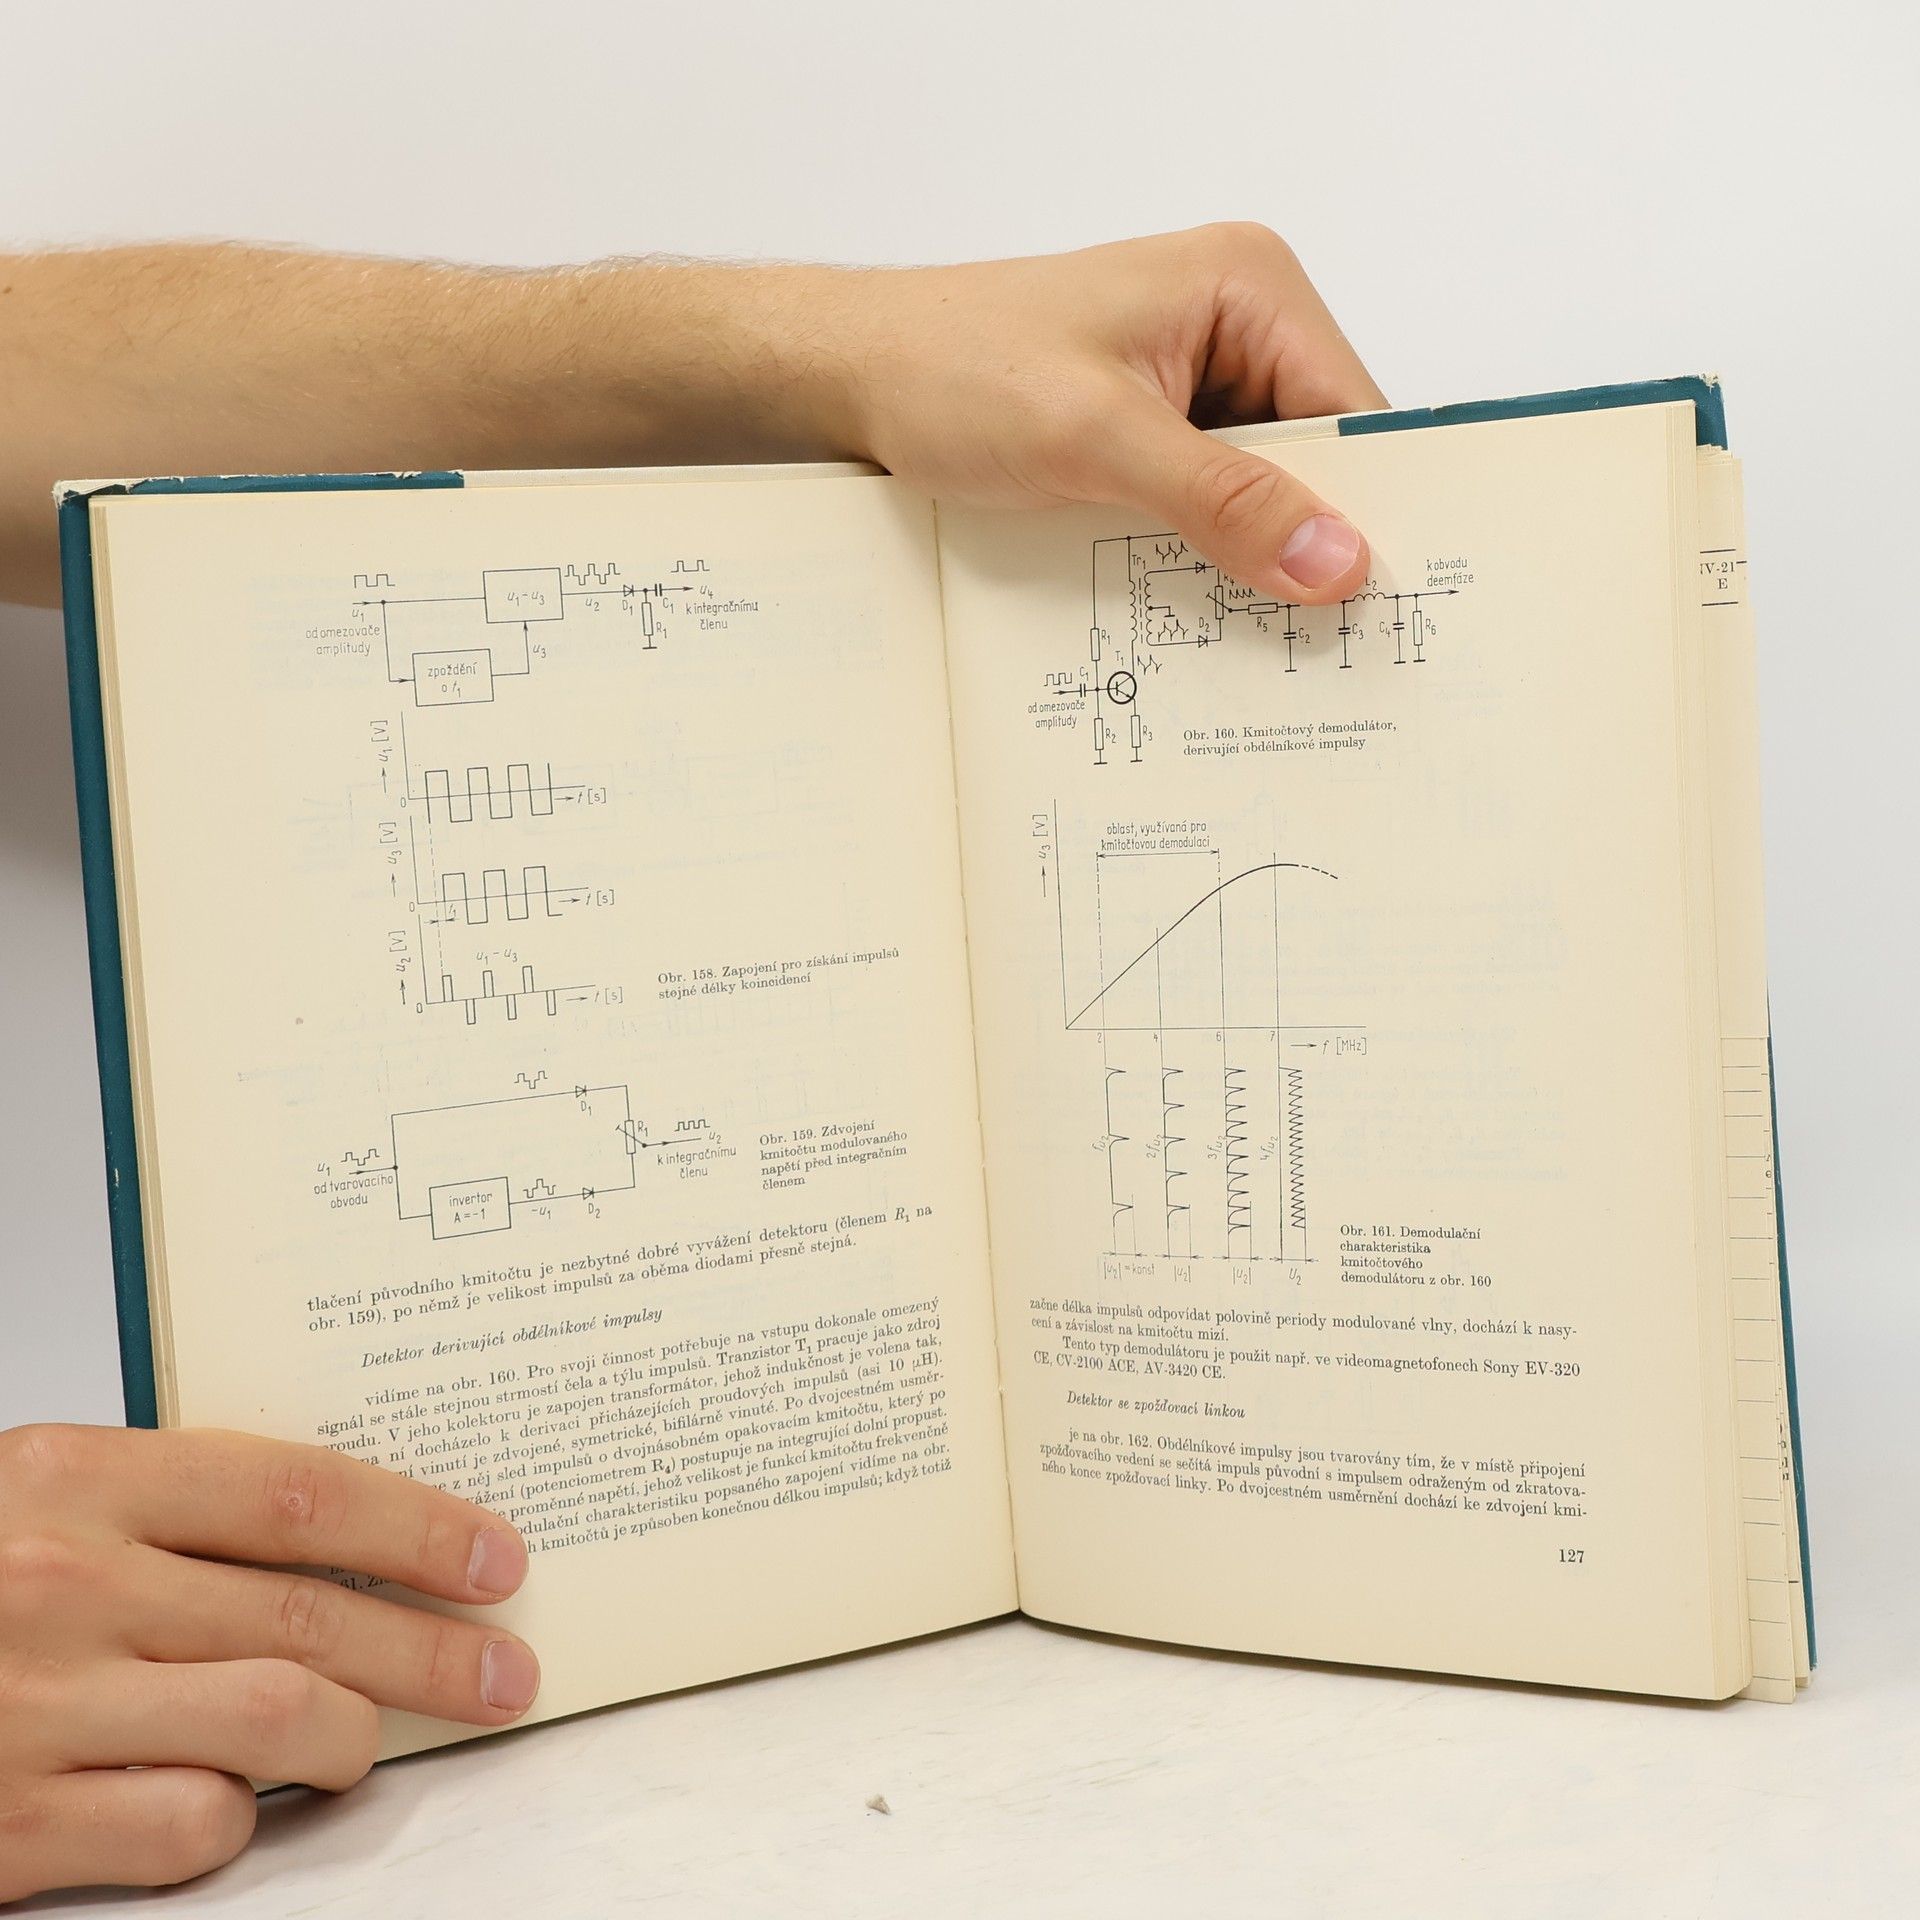 u₁
od omezovače
amplitudy
u₁ – u₃
u₂
D₁
C₁
u₄
k integračnímu
členu
R₁
u₃
zpoždění
o t₁
u₁ [V]
0
t [s]
u₃ [V]
0
t₁
t [s]
u₂ [V]
u₁ – u₃
0
t [s]
Obr. 158. Zapojení pro získání impulsů
stejné délky koincidencí
D₁
R₁
u₂
k integračnímu
členu
u₁
od tvarovacího
obvodu
invertor
A = –1
–u₁
D₂
Obr. 159. Zdvojení
kmitočtu modulovaného
napětí před integračním
členem
tlačení původního kmitočtu je nezbytné dobré vyvážení detektoru (členem R₁ na
obr. 159), po němž je velikost impulsů za oběma diodami přesně stejná.
Detektor derivující obdélníkové impulsy
vidíme na obr. 160. Pro svoji činnost potřebuje na vstupu dokonale omezený
signál se stále stejnou strmostí čela a týlu impulsů. Tranzistor T₁ pracuje jako zdroj
proudu. V jeho kolektoru je zapojen transformátor, jehož indukčnost je volena tak,
na ní docházelo k derivaci přicházejících proudových impulsů (asi 10 μH).
ní vinutí je zdvojené, symetrické, bifilárně vinuté. Po dvojcestném usměr-
z něj sled impulsů o dvojnásobném opakovacím kmitočtu, který po
vážení (potenciometrem R₄) postupuje na integrující dolní propust.
proměnné napětí, jehož velikost je funkcí kmitočtu frekvenčně
odulační charakteristiku popsaného zapojení vidíme na obr.
61.
h kmitočtů je způsoben konečnou délkou impulsů; když totiž
Tr₁
R₄
D₂
R₅
C₂
L₂
C₃
C₄
R₆
k obvodu
deemfáze
R₁
T₁
C₁
od omezovače
amplitudy
R₂
R₃
Obr. 160. Kmitočtový demodulátor,
derivující obdélníkové impulsy
u₃ [V]
oblast, využívaná pro
kmitočtovou demodulaci
2
4
6
7
f [MHz]
fu₂
2fu₂
3fu₂
4fu₂
|u₂| = konst
|u₂|
|u₂|
U₂
Obr. 161. Demodulační
charakteristika
kmitočtového
demodulátoru z obr. 160
začne délka impulsů odpovídat polovině periody modulované vlny, dochází k nasy-
cení a závislost na kmitočtu mizí.
Tento typ demodulátoru je použit např. ve videomagnetofonech Sony EV-320
CE, CV-2100 ACE, AV-3420 CE.
Detektor se zpožďovací linkou
je na obr. 162. Obdélníkové impulsy jsou tvarovány tím, že v místě připojení
zpožďovacího vedení se sečítá impuls původní s impulsem odraženým od zkratova-
ného konce zpožďovací linky. Po dvojcestném usměrnění dochází ke zdvojení kmi-
127
NV-21
E